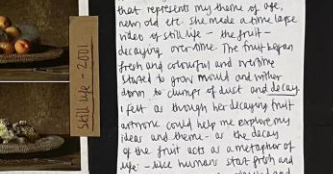 that represents my theme of age,
new, old etc. She made a time lapse
video of still life - the fruit -
decaying over time. The fruit began
fresh and colourful and overtime
started to grow mould and wither
down to clumps of dust and decay.
I felt as though her decaying fruit
artwork could help me explore my
ideas and theme - as the decay
of the fruit acts as a metaphor of
life - like humans start fresh and
Still life - 2001